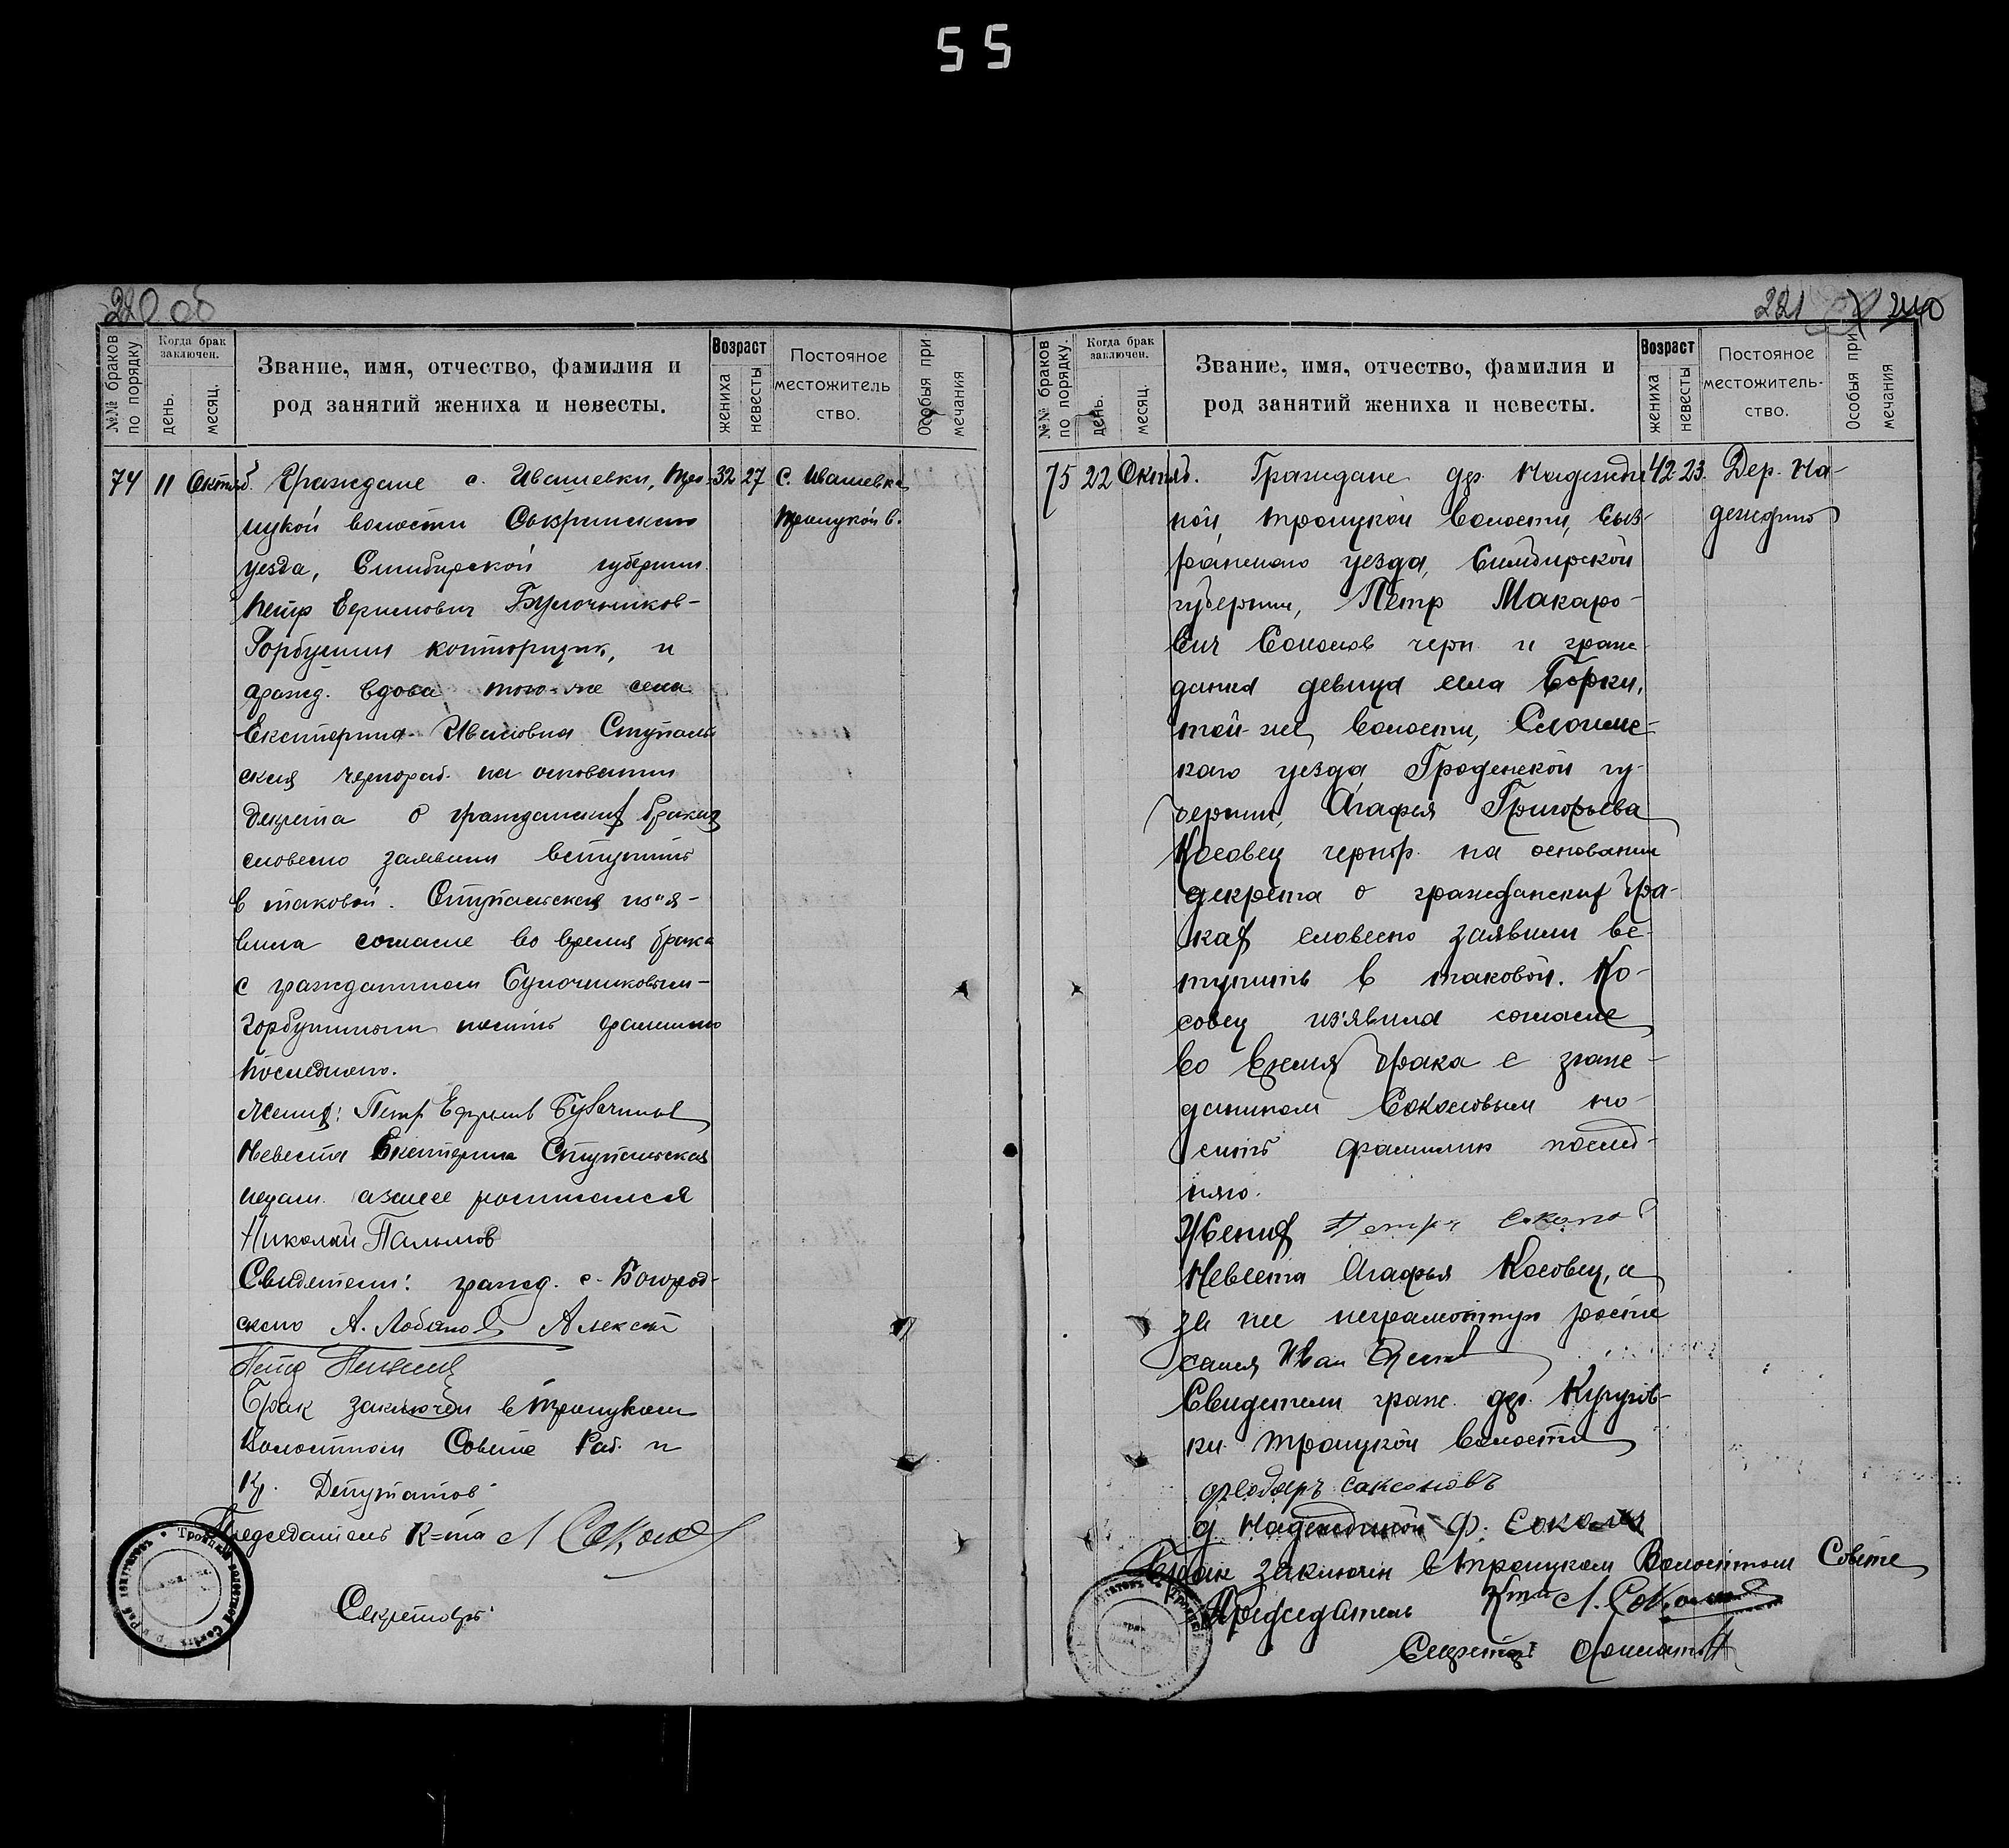 55
220 об
№№ браков по порядку
Когда брак заключен.
день.
месяц.
Звание, имя, отчество, фамилия и
род занятий жениха и невесты.
Возраст
жениха
невесты
Постояное
местожитель
ство.
Особыя при-
мечания
74 11 Октяб. Граждане с. Ивашевки, Тро- 32 27 с. Ивашевка
ицкой волости Сызранского Троицкой в.
уезда, Симбирской губернии
Петр Ефимович Булочников-
Горбунин конторщик, и
гражд. вдова того-же села
Екатерина Ивановна Ступаль-
ская чернораб. на основании
декрета о гражданских браках
словесно заявили вступить
в таковой. Ступальская из"я-
вила согласие во время брака
с гражданином Булочниковым-
Горбуниным носить фамилию
последнего.
Жених: Петр
Невеста Екатерина Ступальская
Николай Пальмов
Свидетели: гражд. с. Богород-
ского А. Лобанов Алексей
Брак заключен в Троицком
Волостном Совете Раб. и
Кр. Депутатов
Председатель К=та Л Соколов
Секретарь
221 240
№№ браков по порядку.
Когда брак заключен.
день.
месяц.
Звание, имя, отчество, фамилия и
род занятий жениха и невесты.
Возраст
жениха
невесты
Постояное
местожитель-
ство.
Особыя при-
мечания
75 22 Октяб. Граждане дер. Надежди- 42 23. Дер. На-
ной, Троицкой волости, Сыз- деждино
ранского уезда, Симбирской
губернии, Петр Макаро-
вич Соколов черн. и граж-
данка девица села Борки,
той-же волости, Слоним-
кого уезда Гроденской гу-
бернии, Агафья Григорьева
Косовец чернор. на основании
декрета о гражданских бра-
ках словесно заявили вс-
тупить в таковой. Ко-
совец из'явила согласие
во время брака с граж-
данином Соколовым но-
сить фамилию послед-
няго.
Жених Петръ Соколов
Невеста Агафья Косовец, а
за нее неграмотную распи
сался Иван
Свидетели граж. дер.
ки Троицкой волости
Федоръ Саксоновъ
д. Надеждиной Ф. Соколов
Брак заключен в Троицком Волостном Совете
Председатель К-та Л. Соколов
Секретарь